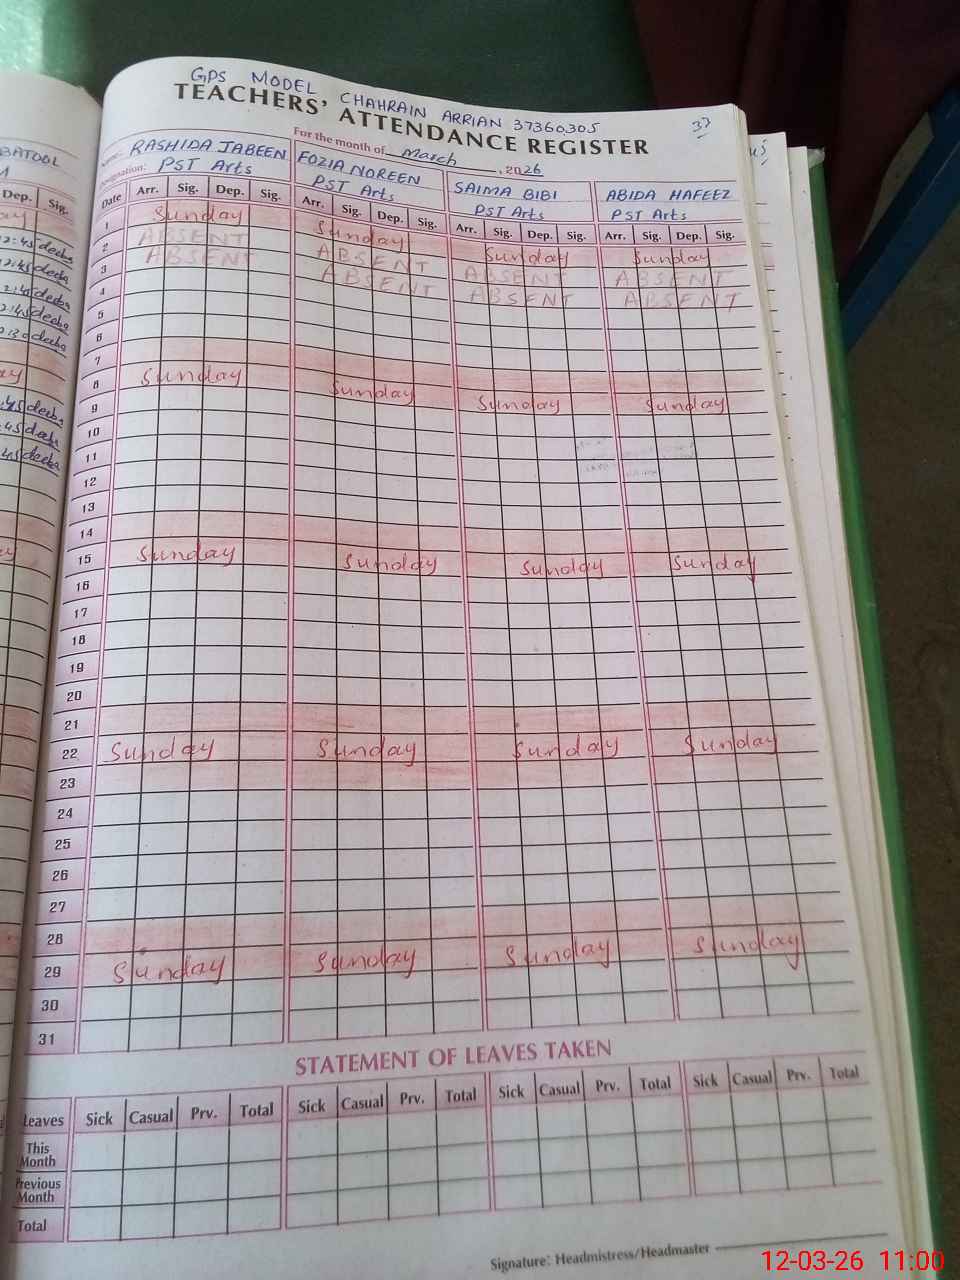 GPS MODEL CHAHRAIN ARRIAN 37360305
37
TEACHERS' ATTENDANCE REGISTER
For the month of March, 2026
RASHIDA JABEEN FOZIA NOREEN SAIMA BIBI ABIDA HAFEEZ
Designation: PST Arts PST Arts PST Arts PST Arts
Date Arr. Sig. Dep. Sig. Arr. Sig. Dep. Sig. Arr. Sig. Dep. Sig. Arr. Sig. Dep. Sig.
1 Sunday Sunday Sunday Sunday
2 ABSENT ABSENT ABSENT ABSENT
3 ABSENT ABSENT ABSENT ABSENT
4
5
6
7
8 Sunday Sunday Sunday Sunday
9
10
11
12
13
14
15 Sunday Sunday Sunday Sunday
16
17
18
19
20
21
22 Sunday Sunday Sunday Sunday
23
24
25
26
27
28
29 Sunday Sunday Sunday Sunday
30
31
STATEMENT OF LEAVES TAKEN
Leaves Sick Casual Prv. Total Sick Casual Prv. Total Sick Casual Prv. Total Sick Casual Prv. Total
This Month
Previous Month
Total
Signature: Headmistress/Headmaster
12-03-26 11:00
BATOOL
Dep. Sig.
12:45 deeba
12:45 deeba
2:45 deeba
2:45 deeba
deeba
.45 deeba
.45 deeba
45 deeba